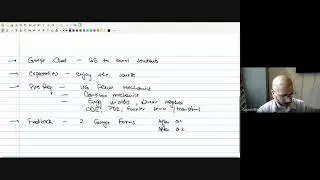 → Google Chat - GB to enrol students
→ Expectations - enjoy the course
→ Pre Req - UG Fluid Mechanics
- Continuum mechanics
- Engg maths, linear algebra
ODE, PDE, Fourier series / transforms
→ Feedback - 2 Google Forms After Q1
After Q2